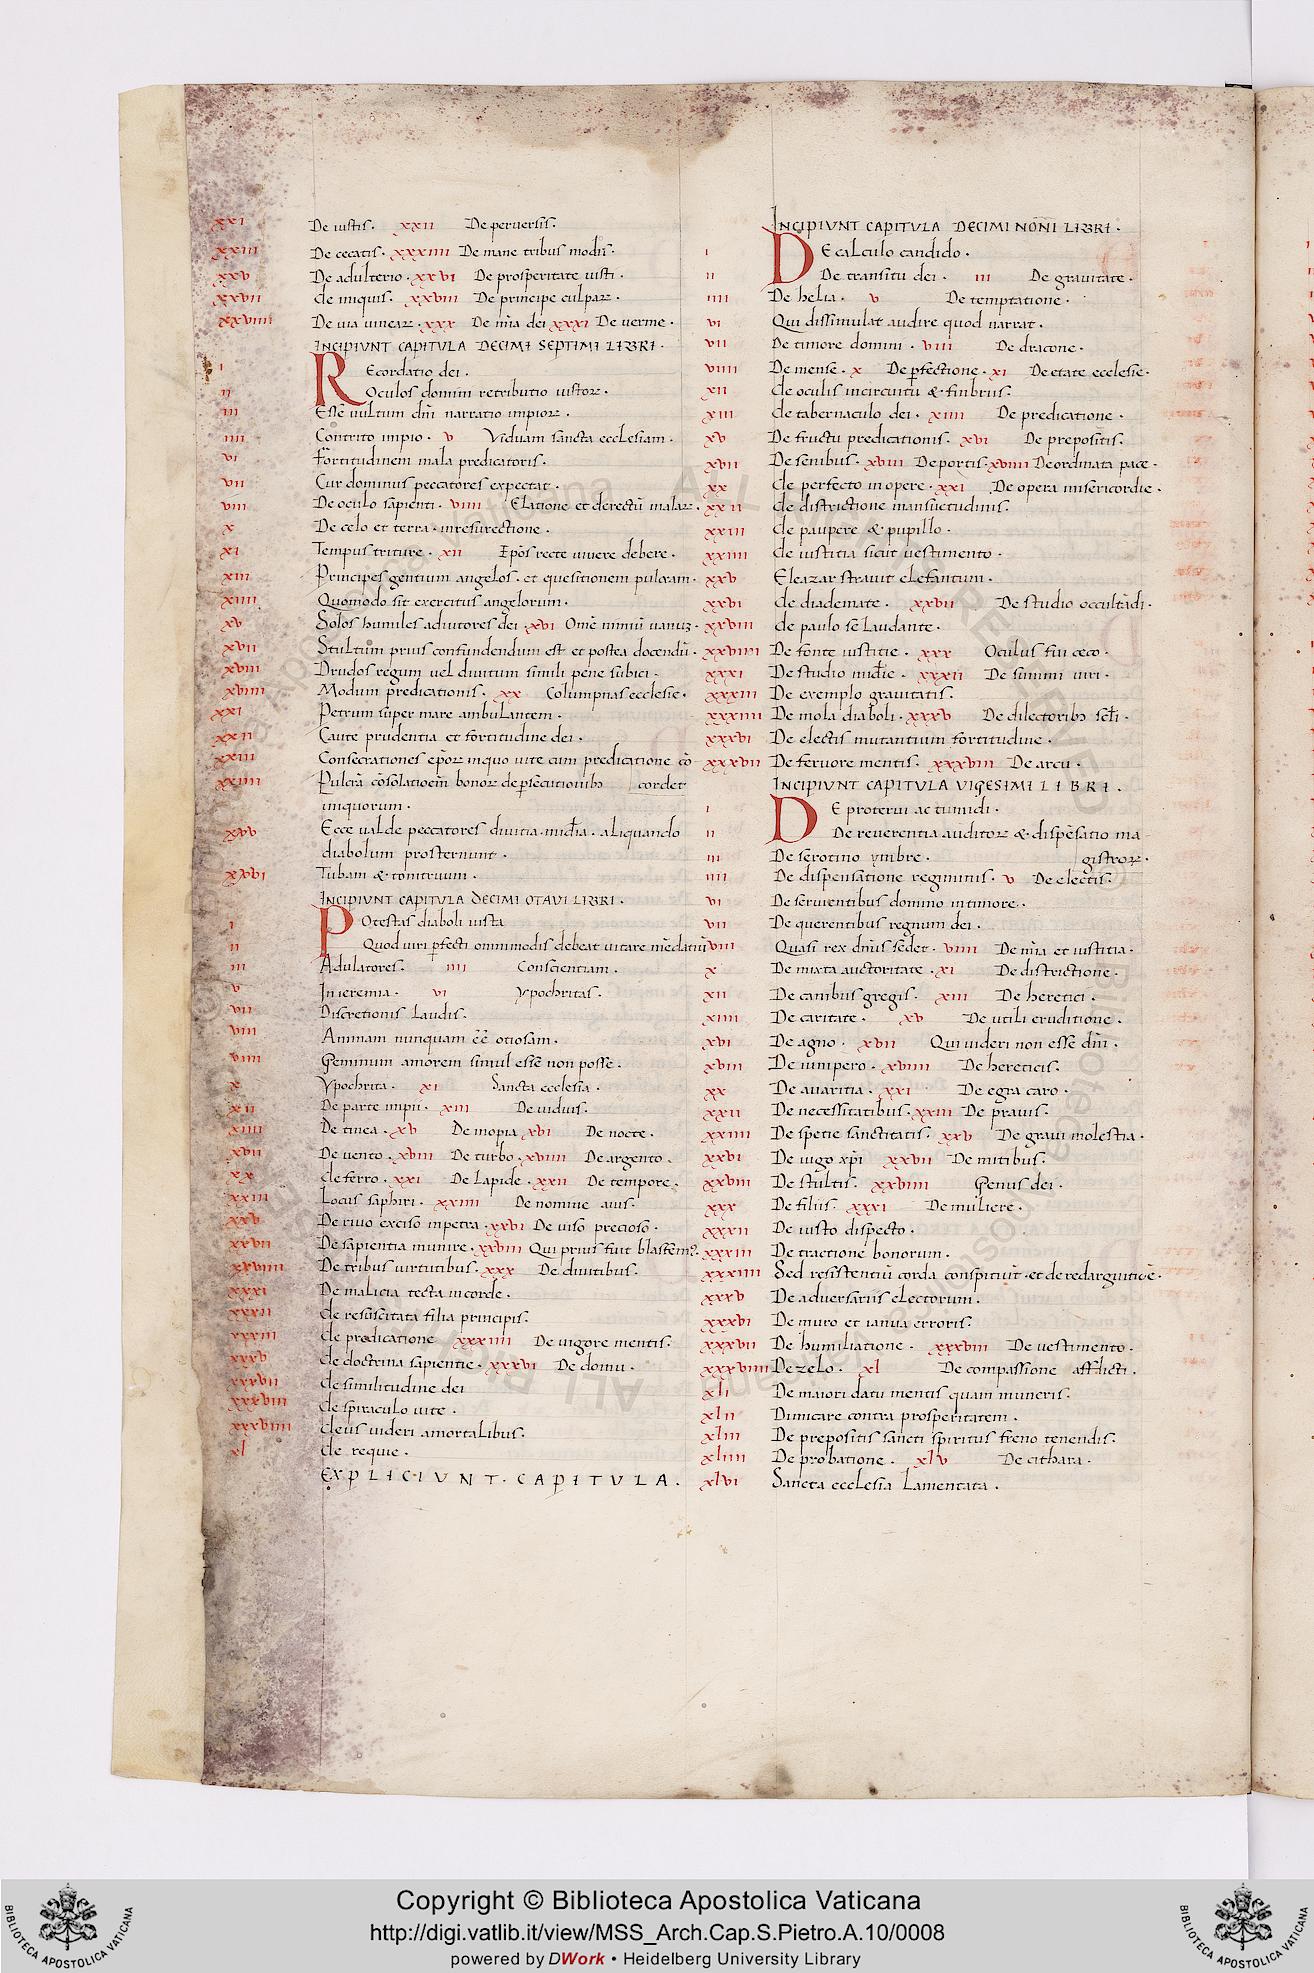 xxi De iustis. xxii De peruersis.
xxiii De cecatis. xxxiiii De mane tribus modis.
xxv De adulterio. xxvi De prosperitate iusti.
xxvii De iniquis. xxviii De principe culpar.
xxviiii De uia uinear. xxx De mia dei xxxi De uerme.
INCIPIVNT CAPITVLA DECIMI SEPTIMI LIBRI.
i Recordatio dei.
ii Oculos domini retributio iustor.
iii Esse uultum dni narratio impior.
iiii Contrito impio. v Viduam sancta ecclesiam.
vi Fortitudinem mala predicatoris.
vii Cur dominus peccatores expectat.
viii De oculo sapienti. viiii Elatione et derectu malar.
x De celo et terra. inresurectione.
xi Tempus triture. xii Epos recte uiuere debere.
xiii Principes gentium angelos. et quesitionem pulcram.
xiiii Quomodo sit exercitus angelorum.
xv Solos humiles adiutores dei. xvi Ome nimiu uanu.
xvii Stultum prius confundendum est et postea docendu.
xviii Drudos regum uel diuitum simili pene subici.
xviiii Modum predicationis. xx Columpnas ecclesie.
xxi Petrum super mare ambulantem.
xxii Caute prudentia et fortitudine dei.
xxiii Consecrationes epor inquo uite cum predicatione co
xxiiii Pulcra cosolatioem bonor de psecutionib cordet
iniquorum.
xxv Ecce ualde peccatores diuitia. midia. aliquando
diabolum prosternunt.
xxvi Tubam & tonitruum.
INCIPIVNT CAPITVLA DECIMI OTAVI LIBRI.
i Potestas diaboli iusta
ii Quod uiri pfecti ommimodis debeat uitare medatiu
iii Adulatores. iiii Conscientiam.
v In ieremia. vi ypochritas.
vii Discretionis laudis.
viii Animam nunquam ee otiosam.
viiii Geminum amorem simul esse non posse.
x Ypochrita. xi Sancta ecclesia.
xii De parte impii. xiii De uiduis.
xiiii De tinea. xv De inopia xvi De nocte.
xvii De uento. xviii De turbo. xviiii De argento.
xx De ferro. xxi De lapide. xxii De tempore.
xxiii Locus saphiri. xxiiii De nomine auis.
xxv De riuo exciso inpetra. xxvi De uiso precioso.
xxvii De sapientia munire. xxviii Qui prius fuit blastem.
xxviiii De tribus uirtutibus. xxx De diuitibus.
xxxi De malicia tecta incorde.
xxxii De resuscitata filia principis.
xxxiii De predicatione xxxiiii De uigore mentis.
xxxv De doctrina sapientie. xxxvi De domu.
xxxvii De similitudine dei
xxxviii De spiraculo uite.
xxxviiii Deus uideri amortalibus.
xl De requie.
EXPLICIVNT. CAPITVLA.
INCIPIVNT CAPITVLA DECIMI NONI LIBRI.
i DE calculo candido.
ii De transitu dei. iii De grauitate.
iiii De helia. v De temptatione.
vi Qui dissimulat audire quod narrat.
vii De timore domini. viii De dracone.
viiii De mense. x De pfectione. xi De etate ecclesie.
xii De oculis incircuitu & finbriis.
xiii De tabernaculo dei. xiiii De predicatione.
xv De fructu predicationis. xvi De prepositis.
xvii De senibus. xviii De portis. xviiii De ordinata pace.
xx De perfecto in opere. xxi De opera misericordie.
xxii De districtione mansuetudinis.
xxiii De paupere & pupillo.
xxiiii De iustitia sicut uestimento.
xxv Eleazar strauit elefantum.
xxvi De diademate. xxvii De studio occultadi.
xxviii De paulo se laudante.
xxviiii De fonte iustitie. xxx Oculus fui ceco.
xxxi De studio midie. xxxii De summi uiri.
xxxiii De exemplo grauitatis.
xxxiiii De mola diaboli. xxxv De dilectorib scli.
xxxvi De electis mutantium fortitudine.
xxxvii De feruore mentis. xxxviii De arcu.
INCIPIVNT CAPITVLA VIGESIMI LIBRI.
i DE proterui ac tumidi.
ii De reuerentia auditor & dispesatio ma-
iii De serotino ymbre. gistror.
iiii De dispensatione regiminus. v De electis.
vi De seruientibus domino intimore.
vii De querentibus regnum dei.
viii Quasi rex dnus sedet. viiii De mia et iustitia.
x De mixta auctoritate. xi De districtione.
xii De canibus gregis. xiii De heretici.
xiiii De caritate. xv De utili eruditione.
xvi De agno. xvii Qui uideri non esse dni.
xviii De iunipero. xviiii De hereticis.
xx De auaritia. xxi De egra caro.
xxii De necessitatibus. xxiii De prauis.
xxiiii De spetie sanctitatis. xxv De graui molestia.
xxvi De uigo xpi xxvii De mitibus.
xxviii De stultis. xxviiii Genus dei.
xxx De filiis. xxxi De muliere.
xxxii De iusto dispecto.
xxxiii De tractione bonorum.
xxxiiii Sed resistentiu corda conspiciut. et de redarguitioe.
xxxv De aduersariis electorum.
xxxvi De muro et ianua erroris.
xxxvii De humiliatione. xxxviii De uestimento.
xxxviiii De zelo. xl De compassione afflicti.
xli De maiori datu mentis quam muneris.
xlii Dimicare contra prosperitatem.
xliii De prepositis sancti spiritus freno tenendis.
xliiii De probatione. xlv De cithara.
xlvi Sancta ecclesia lamentata.
Copyright © Biblioteca Apostolica Vaticana
http://digi.vatlib.it/view/MSS_Arch.Cap.S.Pietro.A.10/0008
powered by DWork • Heidelberg University Library
BIBLIOTECA APOSTOLICA VATICANA
BIBLIOTECA APOSTOLICA VATICANA